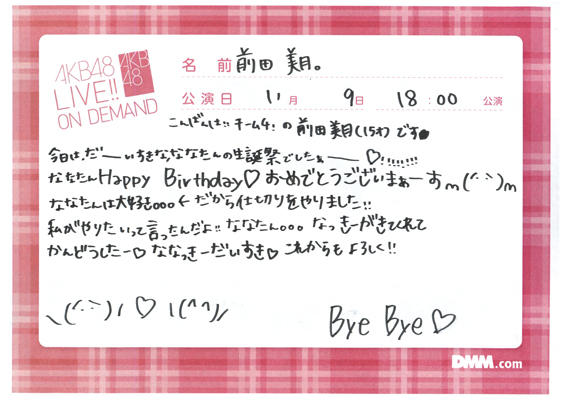 AKB48
LIVE!!
ON DEMAND
AKB
48
名 前 前田 美月。
公演日 11月 9日 18:00 公演
こんばんは!! チーム4! の 前田美月(15才)です
今日は、だーいすきな、ななたんの生誕祭でしたぁー♡!!!!!!!
ななたんHappy Birthday♡おめでとうございまぁーすm(^-^)m
ななたんは大好き。。。←だから仕切りをやりました!!
私がやりたいって言ったんだよ!! ななたん。。。なっきーがきてくれて
かんどうしたー♡ ななっきーだいすき♡ これからもよろしく!!
\(^-^)/ ♡ \(^^)/
Bye Bye♡
DMM.com